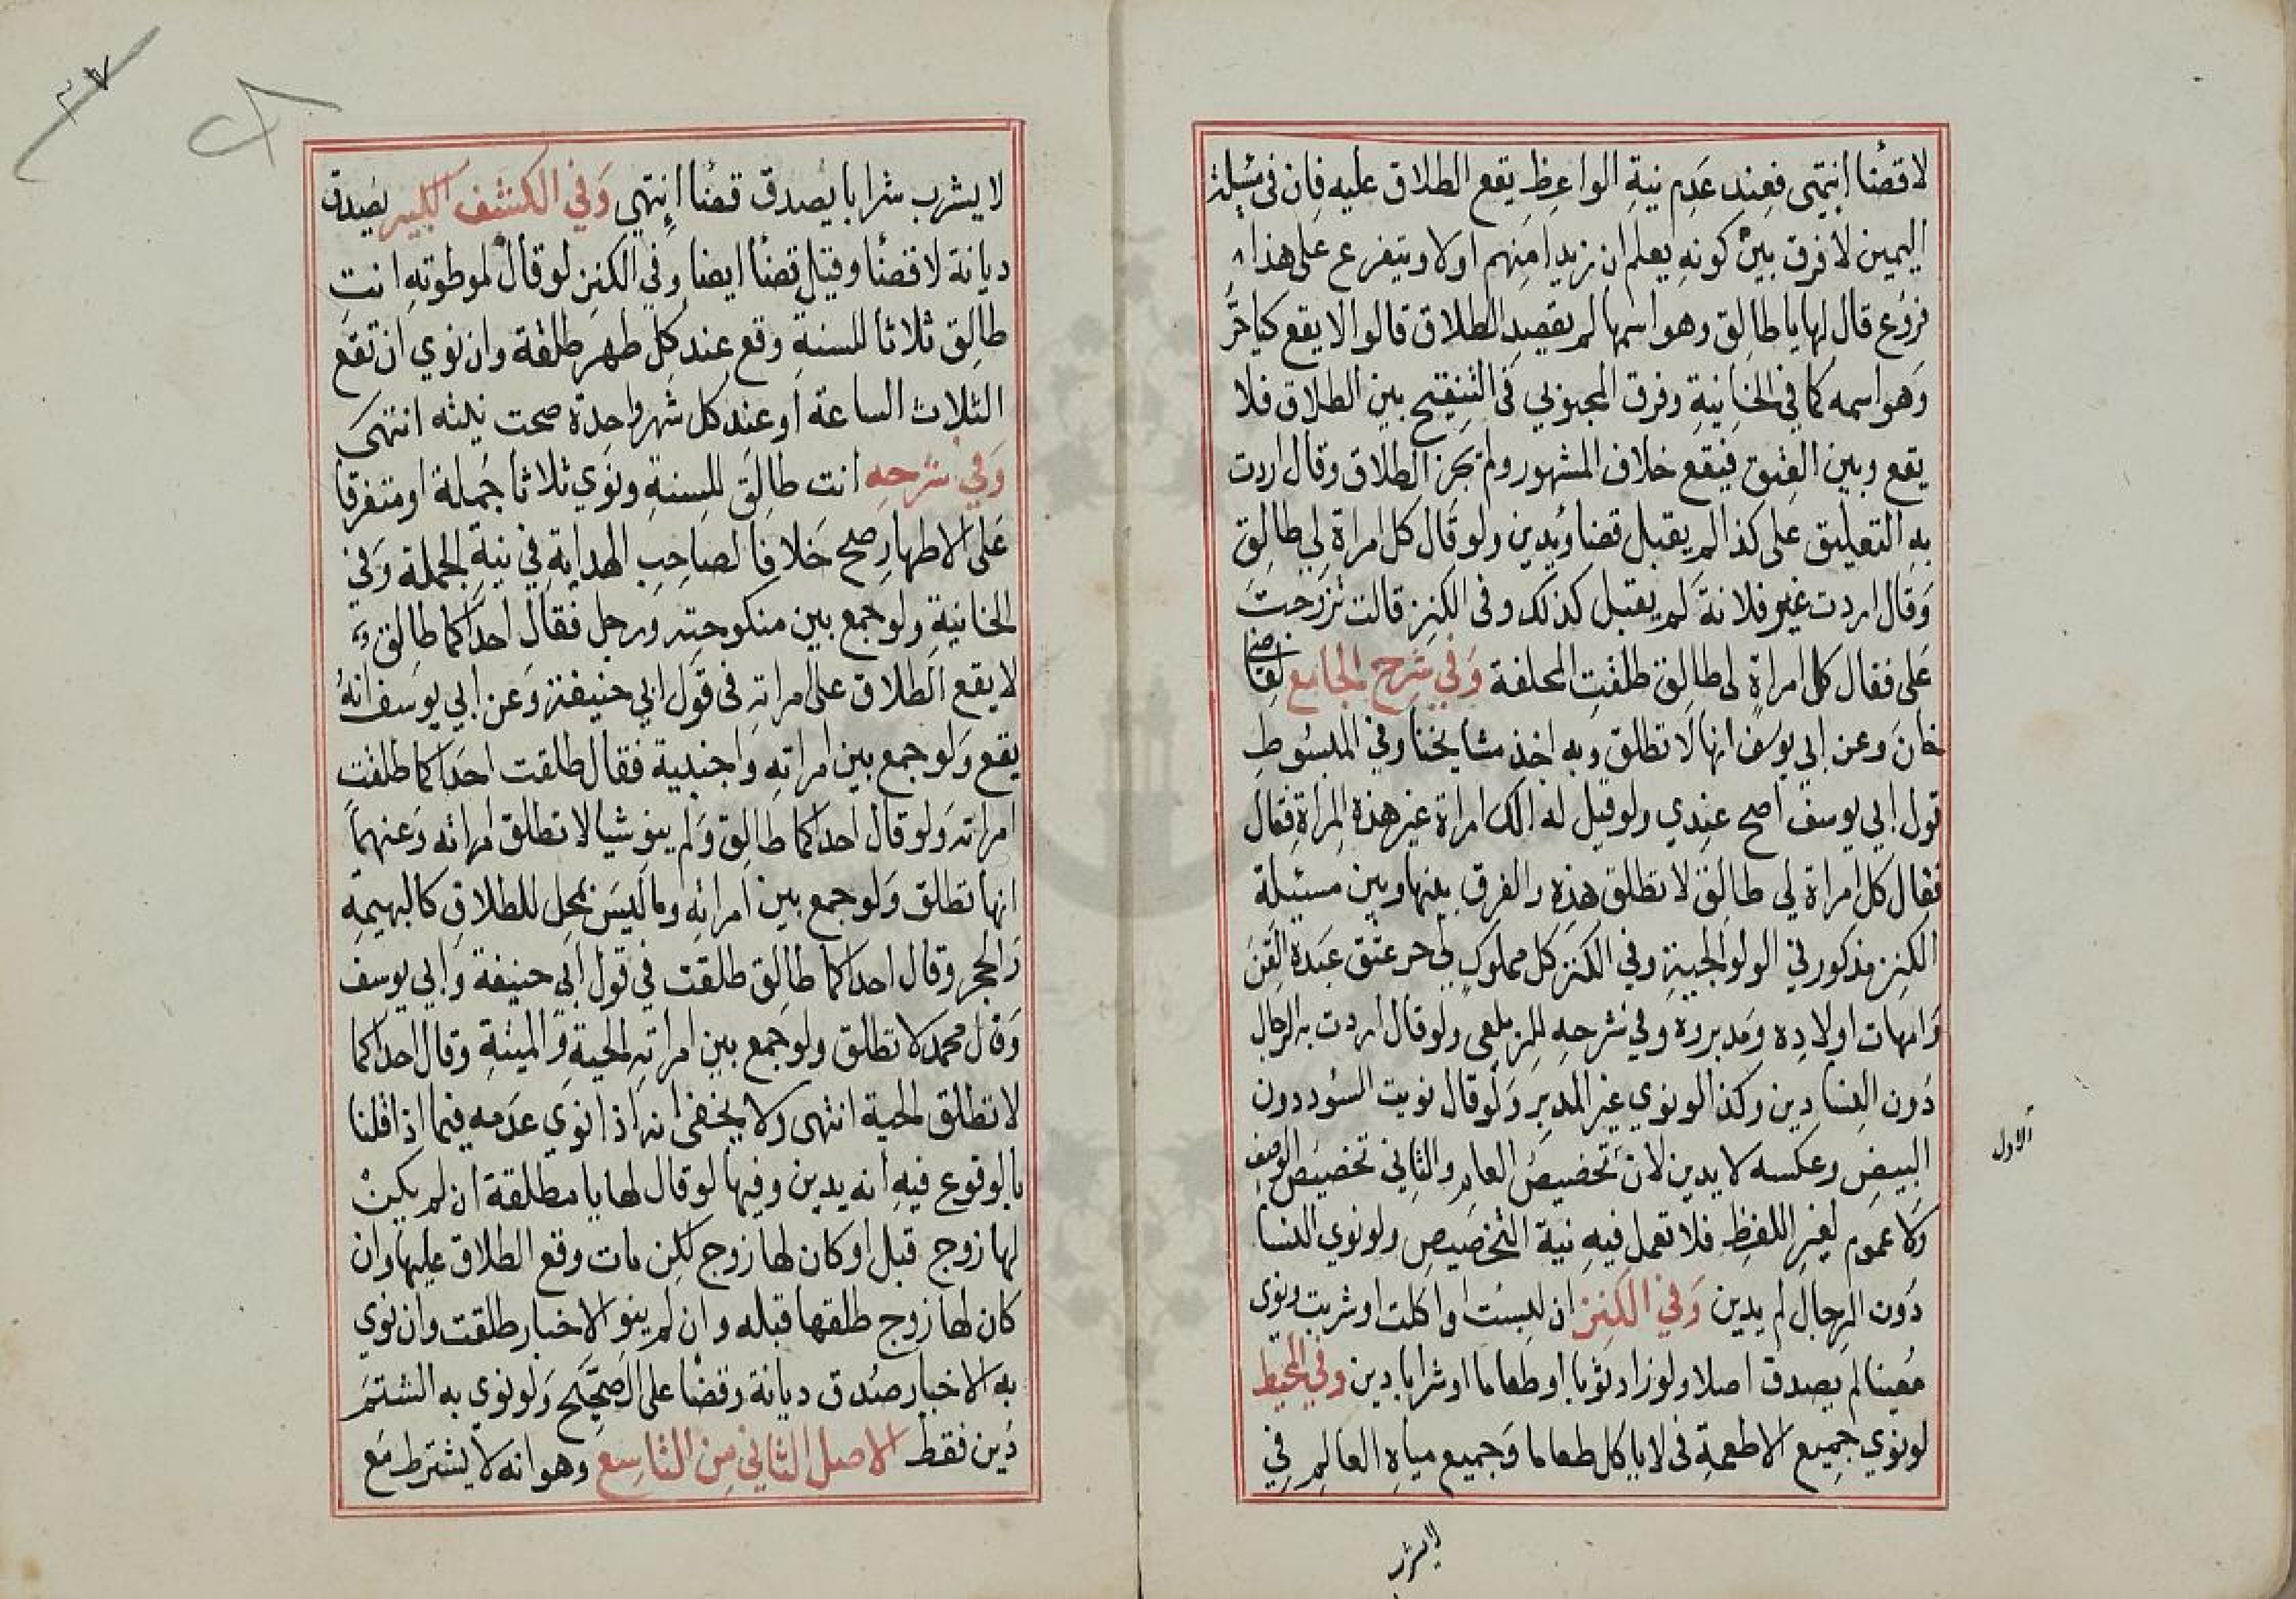 لا قضأ انتهى فعند عدم نية الواعظ يقع الطلاق عليه فان فى مسئلة
اليمين لا فرق بين كونه يعلم ان زيدا منهم اولا ويتفرع على هذا
فروع قال لها يا طالق وهو اسمها لم يقصد الطلاق قالوا لا يقع كيا حر
وهو اسمه كما في الخانية وفرق المحبوبي فى التنقيح بين الطلاق فلا
يقع وبين العتق فيقع خلاف المشهور ولو نجز الطلاق وقال اردت
به التعليق على كذا لم يقبل قضا ويدين ولو قال كل امراة لي طالق
وقال اردت غير فلانة لم يقبل كذلك وفى الكنز قالت تزوجت
على فقال كل امراة لى طالق طلقت المحلفة وفي شرح الجامع لقاضى
خان وعن ابي يوسف انها لا تطلق وبه اخذ مشايخنا وفي المبسوط
قول ابي يوسف اصح عندي ولو قيل له الك امراة غير هذه المراة فقال
فقال كل امراة لي طالق لا تطلق هذه والفرق بينها وبين مسئلة
الكنز مذكور في الولوالجية وفي الكنز كل مملوك لي حر عتق عبده القن
وامهات اولاده ومدبروه وفي شرحه للزيلعي ولو قال اردت به الرجال
دون النسا دين وكذا لو نوي غير المدبر ولو قال نويت السود دون
البيض وعكسه لا يدين لان تخصيص العام والثاني تخصيص الوصف
الاول
ولا عموم لغير اللفظ فلا تعمل فيه نية التخصيص ولو نوي النسا
دون الرجال لم يدين وفي الكنز ان لبست او اكلت او شربت ونوى
معينا لم يصدق اصلا ولو زاد ثوبا او طعاما او شرابا دين وفي المحيط
لو نوي جميع الاطعمة فى لا ياكل طعاما وجميع مياه العالم في
لا يشرب
لا يشرب شرابا يصدق قضأ انتهي وفي الكشف الكبير يصدق
ديانة لا قضأ وقيل قضأ ايضا وفي الكنز لو قال لموطوته انت
طالق ثلاثا للسنة وقع عند كل طهر طلقة وان نوي ان تقع
الثلاث الساعة او عند كل شهر واحدة صحت نيته انتهى
وفي شرحه انت طالق للسنة ونوي ثلاثا جملة او متفرقا
على الاطهار صح خلافا لصاحب الهداية في نية الجملة وفي
الخانية ولو جمع بين منكوحته ورجل فقال احداكما طالق
لا يقع الطلاق على امراته فى قول ابي حنيفة وعن ابي يوسف انه
يقع ولو جمع بين امراته واجنبية فقال طلقت احداكما طلقت
امراته ولو قال احداكما طالق ولم ينو شيا لا تطلق امراته وعنهما
انها تطلق ولو جمع بين امراته وما ليس بمحل للطلاق كالبهيمة
والحجر وقال احداكما طالق طلقت في قول ابي حنيفة وابي يوسف
وقال محمد لا تطلق ولو جمع بين امراته الحية والميتة وقال احداكما
لا تطلق الحية انتهى ولا يخفى انه اذا نوي عدمه فيما اذا قلنا
بالوقوع فيه انه يدين وفيها لو قال لها يا مطلقة ان لم يكن
لها زوج قبل او كان لها زوج لكن مات وقع الطلاق عليها وان
كان لها زوج طلقها قبله وان لم ينو الاخبار طلقت وان نوي
به الاخبار صدق ديانة وقضأ على الصحيح ولو نوي به الشتم
دين فقط الاصل الثاني من التاسع وهو انه لا يشترط مع